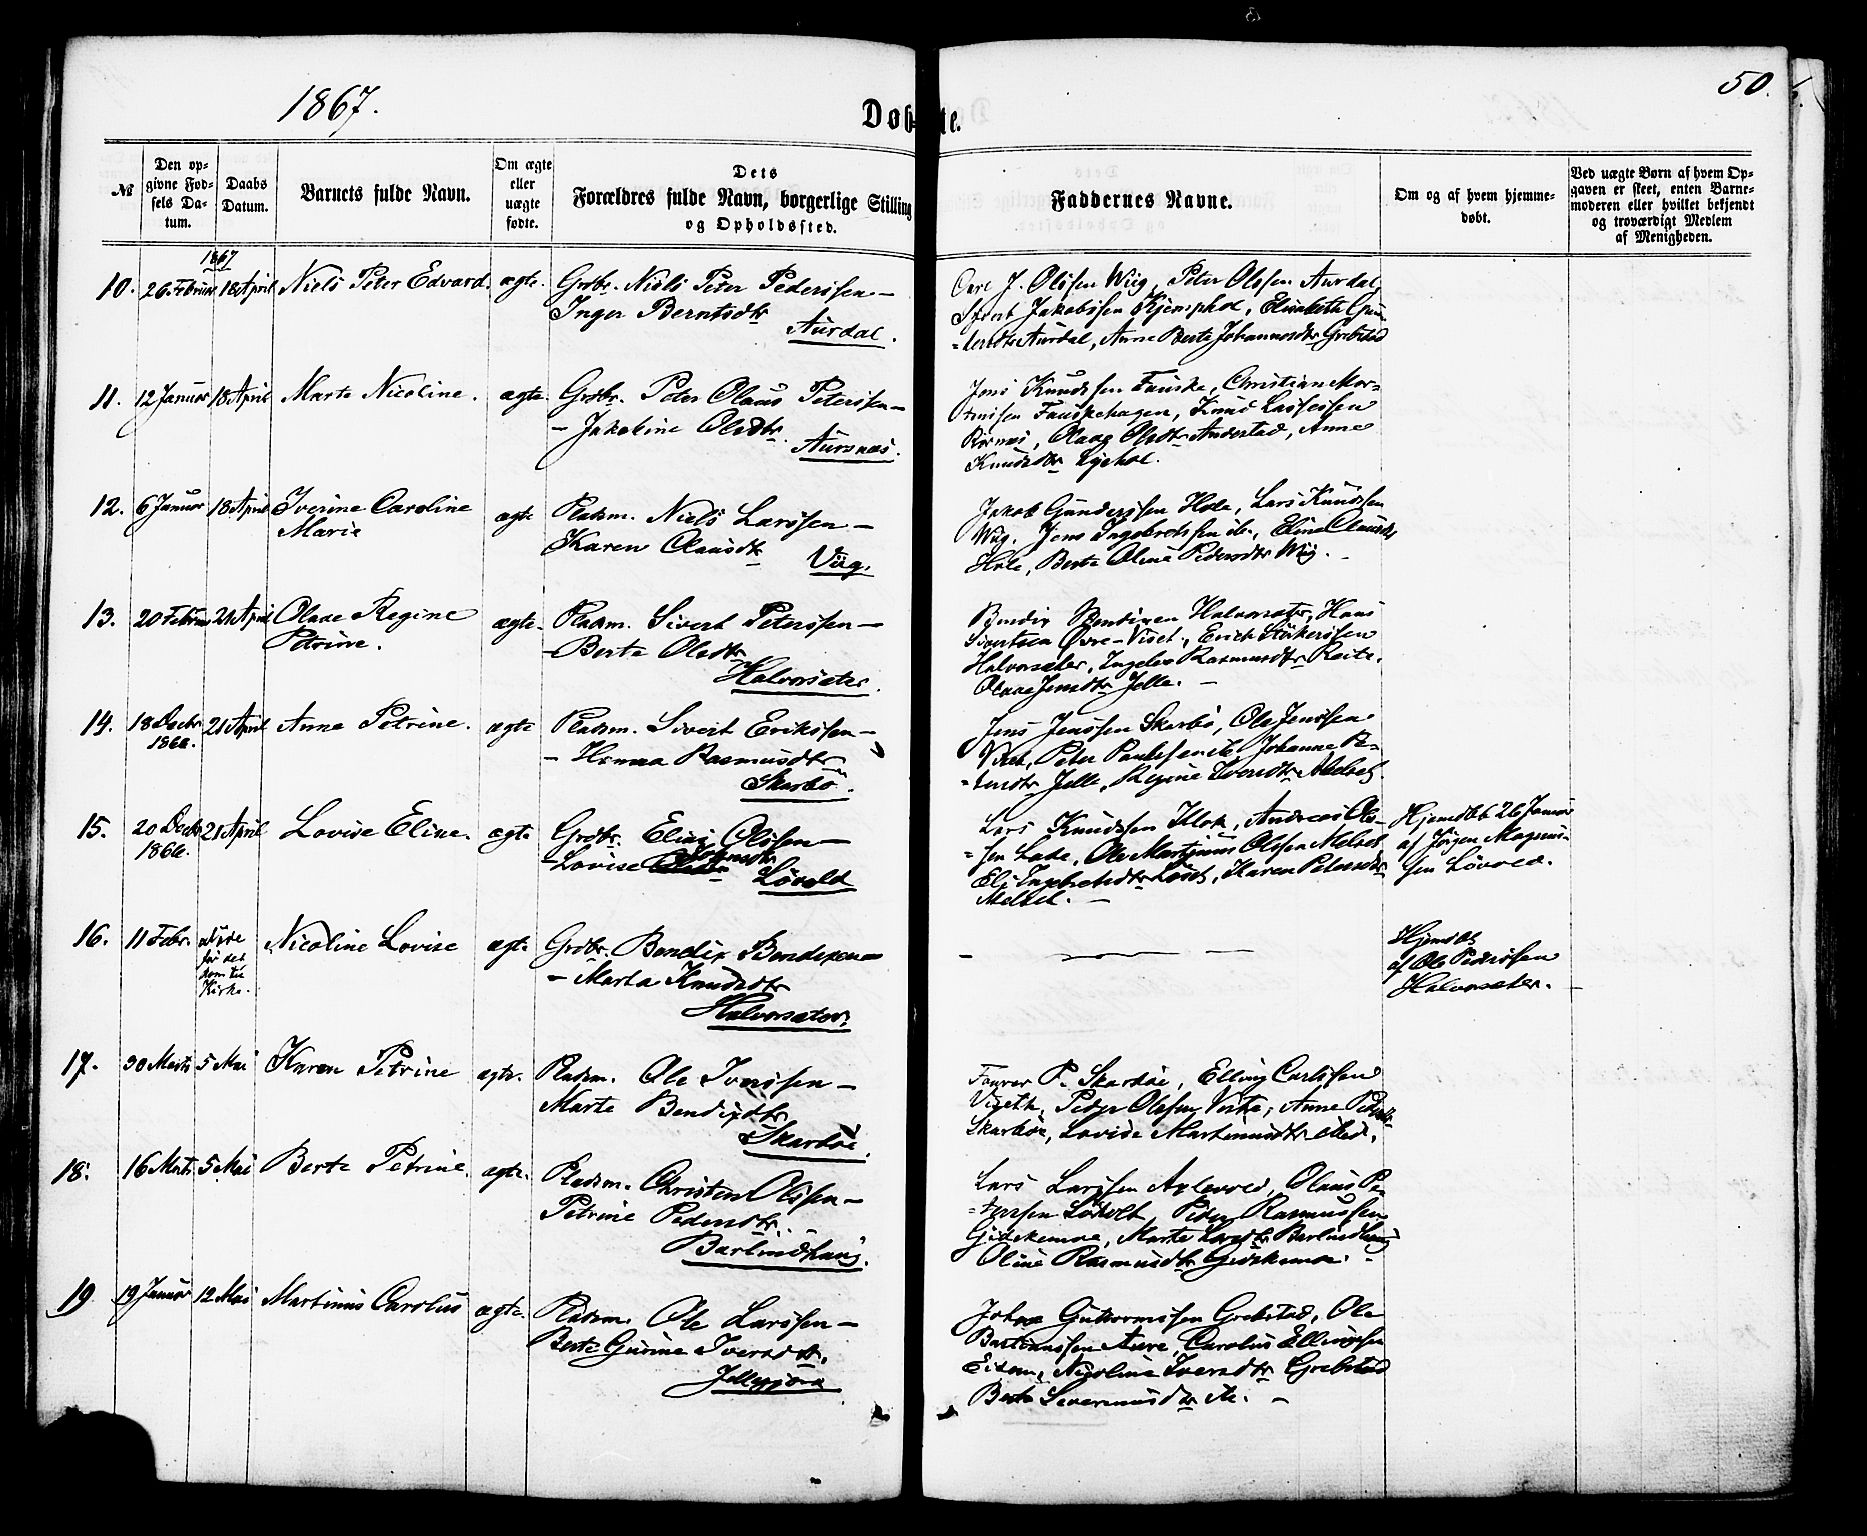 1867.
50.
Døbte.
№
Den opgivne Fødsels Datum.
Daabs Datum.
Barnets fulde Navn.
Om ægte eller uægte fødte.
Dets Forældres fulde Navn, borgerlige Stilling og Opholdssted.
Faddernes Navne.
Om og af hvem hjemmedøbt.
Ved uægte Børn af hvem Opgaven er skeet, enten Barnemoderen eller hvillet bekjendt og troværdigt Medlem af Menigheden.
1867
10. 26 Februar 18 April Niels Peter Edvard. ægte. Grdbr. Niels Peter Pederssen –
Inger Berntsdtr
Aurdal.
Carl J. Olssen Wiig, Peter Olssen Aurdal,
Sivert Jakobssen Kjemphol, Elisabeth Gun-
Aurdal, Anne Berte Johannesdtr Grebstad
11. 12 Januar 18 April Marte Nicoline. ægte. Grdbr. Peter Olaus Peterssen –
– Jakobine Olsdtr.
Aursnes.
Jens Knudssen Fauske, Christian Mor-
tenssen Fauskehagen, Knud Lassessen
Olave Olsdtr Andestad, Anne
Knudsdtr
12. 6 Januar 18 April Iverine Caroline
Marie
ægte Pladsm. Niels Larssen –
Karen Olausdtr
Viig.
Jakob Gunderssen Hole, Lars Knudssen
Wiig, Jens Ingebretssen do, Eline Olausdtr
Hole, Berte Oline Pedersdtr Wiig. –
13. 20 Februar 21 April Olave Regine
Petrine.
ægte. Pladsm. Sivert Peterssen –
– Berte Olsdtr
Halvorsæter.
Bendix Bendixen Halvorsæter, Hans
Sivertsen Øvre-Viset, Erich
Halvorsæter, Ingeborg Rasmusdtr Reite,
Olave Jensdtr Jelle. –
14. 18 Decbr 1866. 21 April Anne Petrine. ægte Pladsm. Sivert Erikssen –
– Rasmusdtr
Skarbø.
Jens Jenssen Skarbø, Ole Jenssen
Viset, Peter Paulssen do, Johanne Pe-
tersdtr Jelle, Regine Melset.
15. 20 Decbr 1866. 21 April Lovise Eline. ægte Grdbr. Elias Olssen –
– Lovise Johnsdtr
Løvold
Lars Knudssen Klok, Andreas Ols-
sen Lade, Ole Martinus Olssen Melset
Eli Ingebretsdtr Karen Petersdtr
Melset. –
Hjemdøbt 26 Januar
af Jørgen Magnus-
sen Løvold.
16. 11 Febr. døde
før det
kom til
Kirke.
Nicoline Lovise ægte Grdbr. Bendix Bendixen
– Marta Knudsdtr
Halvorsæter.
Hjemdøbt
af Ole Pederssen
Halvorsæter. –
17. 30 Marts 5 Mai Karen Petrine ægte. Pladsm. Ole Iverssen –
Marte Bendixdtr
Skarbøe.
P. Skarbøe, Elling Carlssen
Viseth, Peder Olssen Anne
Skarbøe, Lovise Martinusdtr
18. 16 Marts 5 Mai Berte Petrine ægte. Pladsm. Christen Olssen –
Petrine Pedersdtr. –
Barlindhaug.
Lars Larssen Olaus Pe-
terssen Løvolt, Peder Rasmussen
Gidskemoe, Marte Larsdtr Barlindhaug
Oline Rasmusdtr Gidskemoe.
19 19 Januar 12 Mai Martinus Carolus ægte. Pladsm. Ole Larssen –
Berte Gurine Iversdtr,
Johan Guttormssen Grebstad, Ole
Bastianssen Aure, Carolus Ellingssen
Nicoline Iversdtr Grebstad
Berte Severinusdtr do. –